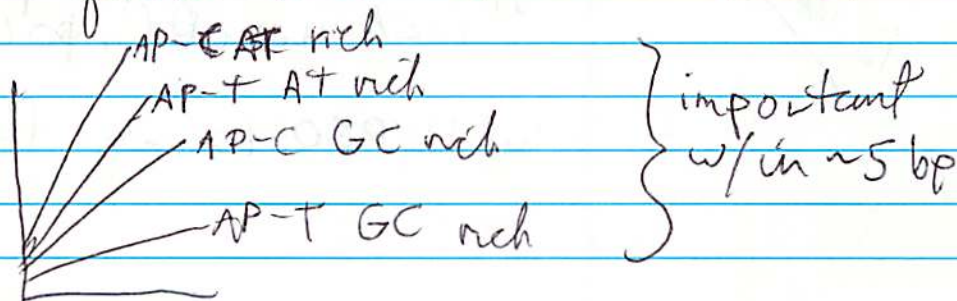 AP-C AT rich
AP-T AT rich
AP-C GC rich
AP-T GC rich
important
w/in ~5 bp